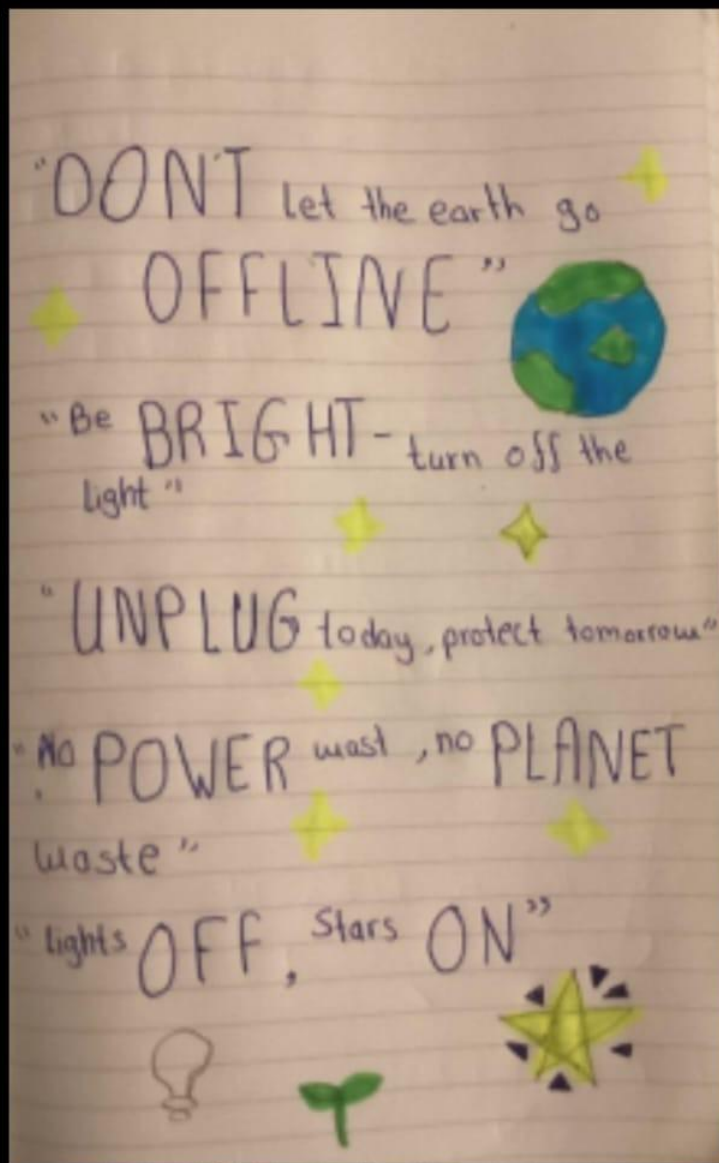 "DON'T let the earth go
OFFLINE"
"Be BRIGHT - turn off the
light"
"UNPLUG today, protect tomorrow"
"No POWER wast, no PLANET
waste"
"lights OFF, Stars ON"